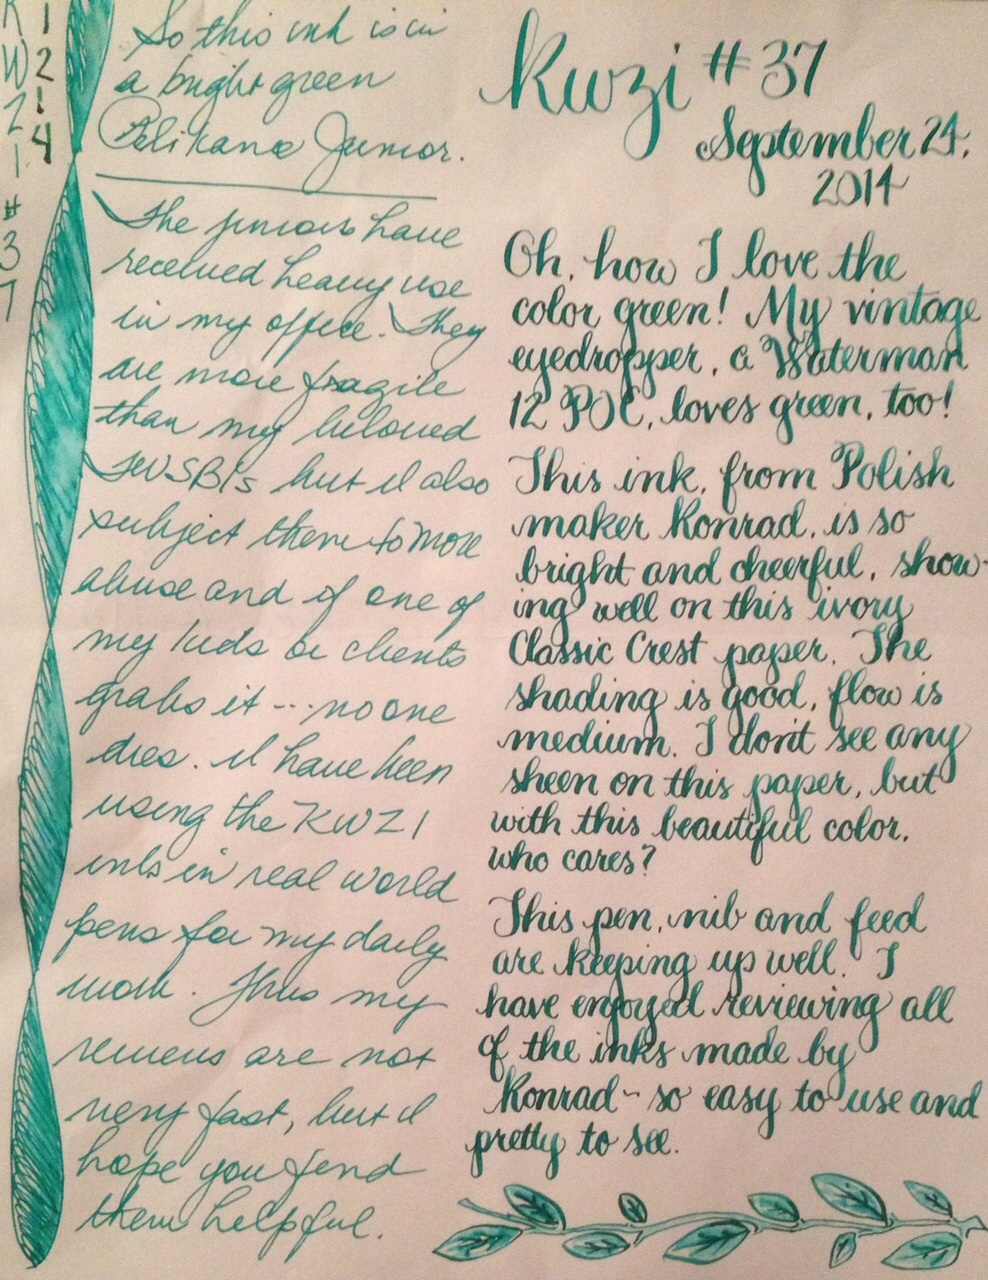 K
W
Z
I
#
3
7
1
2
1
4
So this ink is in
a bright green
Pelikano Junior.
The juniors have
received heavy use
in my office. They
are more fragile
than my beloved
TWSBIs but I also
subject them to more
abuse and if one of
my kids or clients
grabs it -- no one
dies. I have been
using the KWZI
inks in real world
pens for my daily
work. Thus my
reviews are not
very fast, but I
hope you find
them helpful.
Kwzi #37
September 24,
2014
Oh, how I love the
color green! My vintage
eyedropper, a Waterman
12 POC, loves green, too!
This ink, from Polish
maker Konrad, is so
bright and cheerful, show-
ing well on this ivory
Classic Crest paper. The
shading is good, flow is
medium. I don't see any
sheen on this paper, but
with this beautiful color,
who cares?
This pen, nib and feed
are keeping up well. I
have enjoyed reviewing all
of the inks made by
Konrad - so easy to use and
pretty to see.